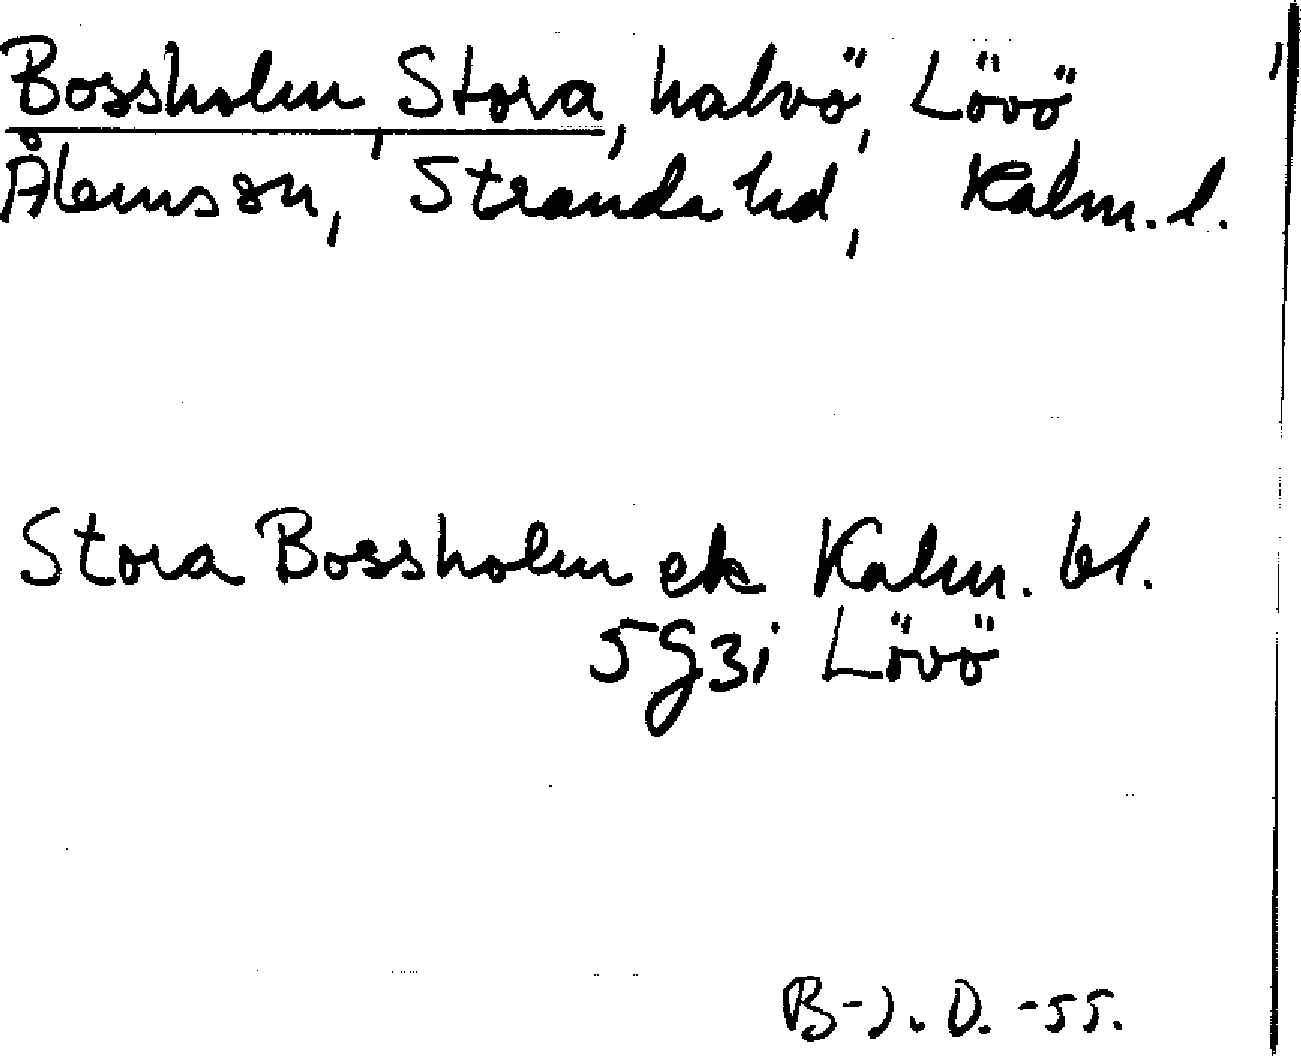 Bossholm, Stora, halvö, Lövö
Ålems sn, Stranda hd, Kalm. l.
Stora Bossholm ek Kalm. bl.
5g3i Lövö
B-J. D. -55.